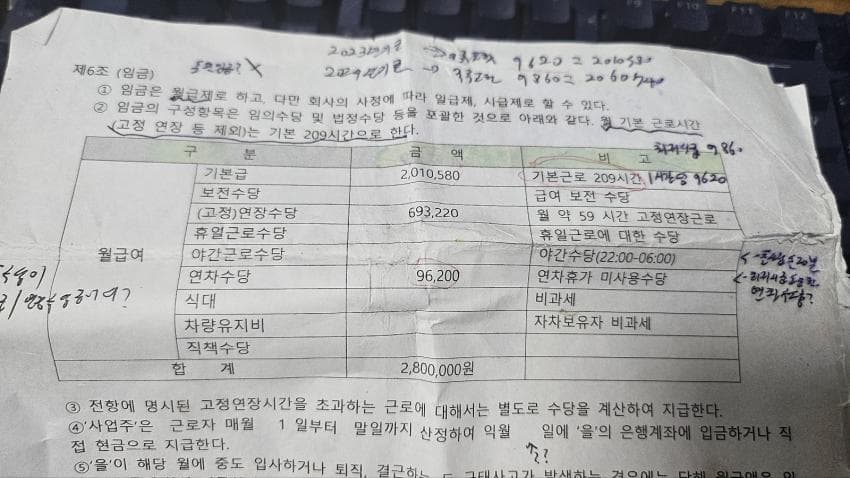 2023년기준 → 9620 = 2010580
2024년기준 → 9860 = 2060740
제6조 (임금) 통상임금? X
① 임금은 월급제로 하고, 다만 회사의 사정에 따라 일급제, 시급제로 할 수 있다.
② 임금의 구성항목은 임의수당 및 법정수당 등을 포괄한 것으로 아래와 같다. 월 기본 근로시간
(고정 연장 등 제외)는 기본 209시간으로 한다.
최저시급 9,860
구 분 금 액 비 고
월급여
기본급 2,010,580 기본근로 209시간 1시간당 9620
보전수당 급여 보전 수당
(고정)연장수당 693,220 월 약 59 시간 고정연장근로
휴일근로수당 휴일근로에 대한 수당
야간근로수당 야간수당(22:00-06:00)
연차수당 96,200 연차휴가 미사용수당
연차수당?
식대 비과세
차량유지비 자차보유자 비과세
직책수당
합 계 2,800,000원
③ 전항에 명시된 고정연장시간을 초과하는 근로에 대해서는 별도로 수당을 계산하여 지급한다.
④'사업주'은 근로자 매월 1 일부터 말일까지 산정하여 익월 일에 '을'의 은행계좌에 입금하거나 직
접 현금으로 지급한다.
⑤'을'이 해당 월에 중도 입사하거나 퇴직, 결근하는